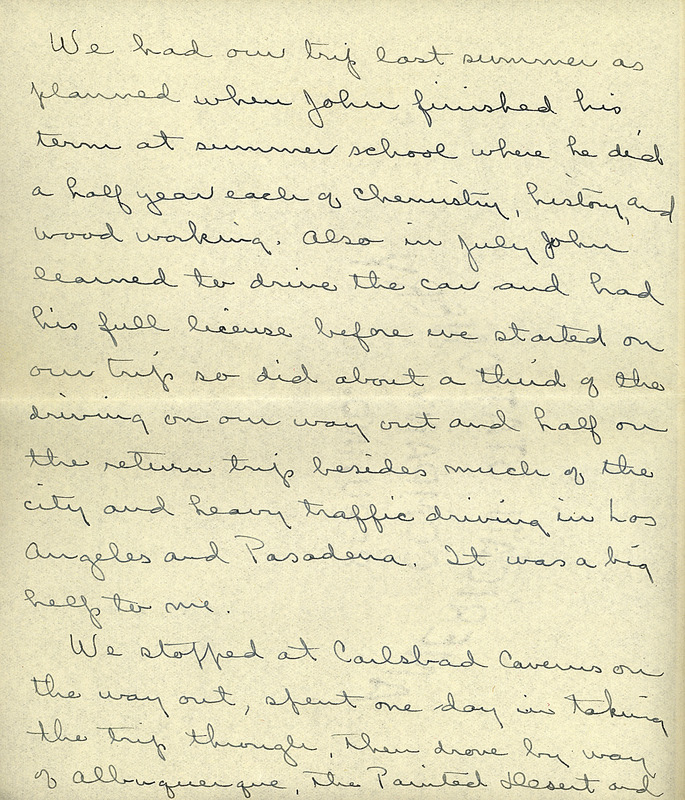 We had our trip last summer as
planned when John finished his
term at summer school where he did
a half year each of Chemistry, history, and
wood working. Also in July John
learned to drive the car and had
his full license before we started on
our trip so did about a third of the
driving on our way out and half on
the return trip besides much of the
city and heavy traffic driving in Los
Angeles and Pasadena. It was a big
help to me.
We stopped at Carlsbad Caverns on
the way out, spent one day in taking
the trip through, then drove by way
of Albuquerque, the Painted Desert and